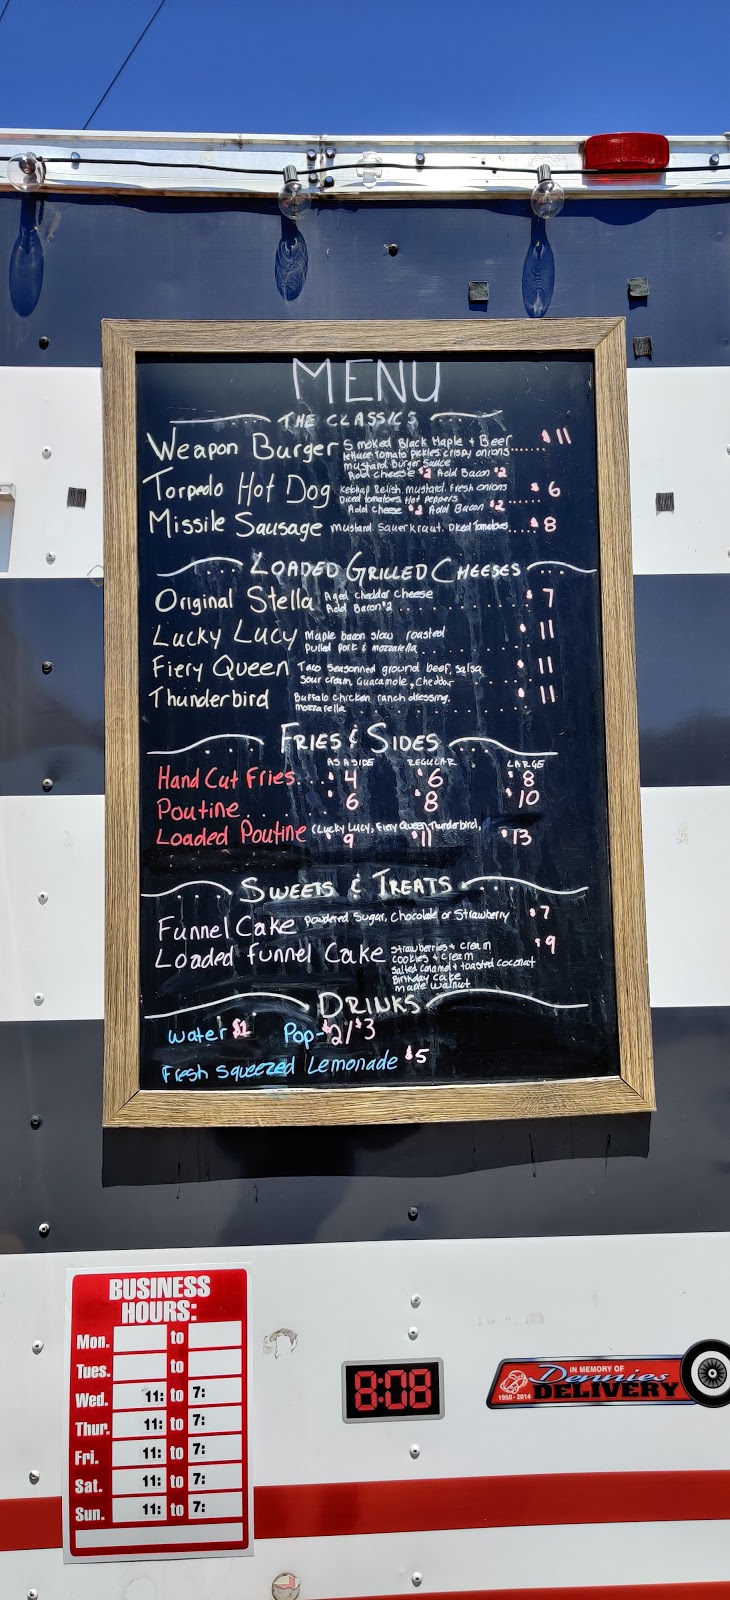 MENU
THE CLASSICS
Weapon Burger Smoked Black Maple + Beer $11
lettuce tomato pickles crispy onions
mustard Burger Sauce
Add cheese $2 Add Bacon $2
Torpedo Hot Dog Ketchup Relish, Mustard, Fresh onions $6
Diced tomatoes, Hot Peppers
Add cheese $2 Add Bacon $2
Missile Sausage Mustard Sauerkraut, Diced Tomatoes $8
LOADED GRILLED CHEESES
Original Stella Aged cheddar cheese $7
Add Bacon $2
Lucky Lucy Maple bacon slow roasted $11
Pulled Pork & mozzarella
Fiery Queen Taco seasonned ground beef, salsa $11
sour cream, Guacamole, Cheddar
Thunderbird Buffalo chicken ranch dressing, $11
mozzarella
FRIES & SIDES
AS A SIDE REGULAR LARGE
Hand Cut Fries $4 $6 $8
Poutine $6 $8 $10
Loaded Poutine (Lucky Lucy, Fiery Queen, Thunderbird,
$9 $11 $13
SWEETS & TREATS
Funnel Cake Powdered Sugar, Chocolate or Strawberry $7
Loaded Funnel Cake Strawberries + Cream $9
Cookies + Cream
Salted Caramel + toasted coconut
Birthday Cake
Maple Walnut
DRINKS
Water $1 Pop-$2/$3
Fresh Squeezed Lemonade $5
BUSINESS
HOURS:
Mon. to
Tues. to
Wed. 11: to 7:
Thur. 11: to 7:
Fri. 11: to 7:
Sat. 11: to 7:
Sun. 11: to 7:
8:08
IN MEMORY OF
Dennies
DELIVERY
1950-2014